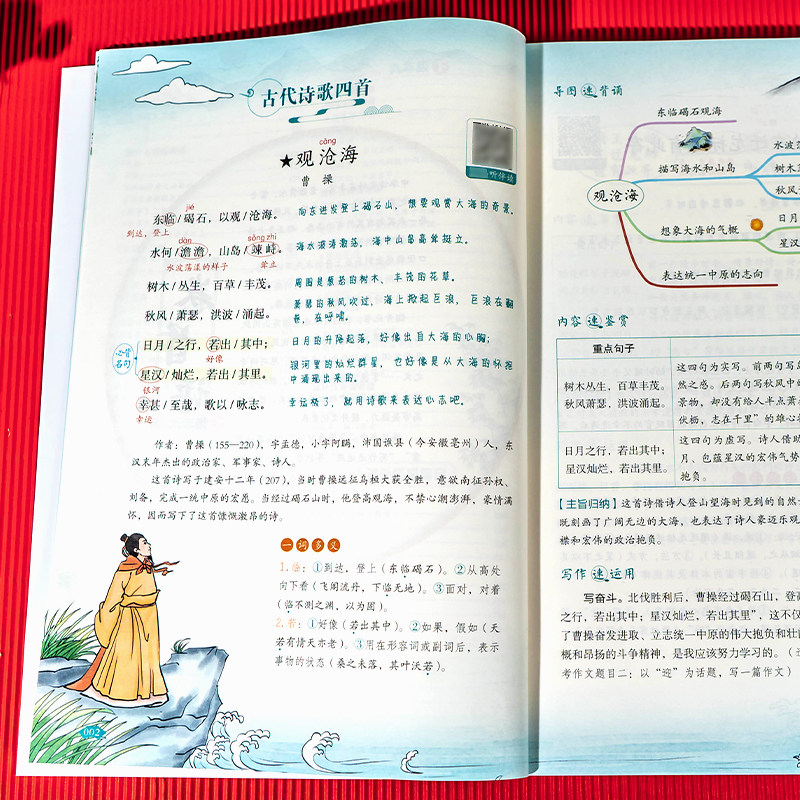 古代诗歌四首
cāng
★观沧海
曹操
听伴读
jié
东临/碣石，以观/沧海。 向东进发登上碣石山，想要观赏大海的奇景。
到达，登上
dàn sǒng zhì
水何/澹澹，山岛/竦峙。 海水波涛激荡，海中山岛高耸挺立。
水波荡漾的样子 耸立
树木/丛生，百草/丰茂。 周围是葱茏的树木、丰茂的花草。
秋风/萧瑟，洪波/涌起。 萧瑟的秋风吹过，海上掀起巨浪，巨浪在翻
卷，在呼啸。
必背名句
日月/之行，若出/其中； 日月的升降起落，好像出自大海的心胸；
好像
星汉/灿烂，若出/其里。 银河里的灿烂群星，也好像是从大海的怀抱
中涌现出来的。
银河
幸甚/至哉，歌以/咏志。 幸运极了，就用诗歌来表达心志吧。
幸运
作者：曹操（155—220），字孟德，小字阿瞒，沛国谯县（今安徽亳州）人，东
汉末年杰出的政治家、军事家、诗人。
这首诗写于建安十二年（207），当时曹操远征乌桓大获全胜，意欲南征孙权、
刘备，完成一统中原的宏愿。当经过碣石山时，他登高观海，不禁心潮澎湃，豪情满
怀，因而写下了这首慷慨激昂的诗。
一词多义
1.临：①到达，登上（东临碣石）。②从高处
向下看（飞阁流丹，下临无地）。③面对，对着
（临不测之渊，以为固）。
2.若：①好像（若出其中）。②如果，假如（天
若有情天亦老）。③用在形容词或副词后，表示
事物的状态（桑之未落，其叶沃若）。
002
导图速背诵
观沧海
东临碣石观海
描写海水和山岛
水波荡
树木
秋风
想象大海的气概
日月
星汉
表达统一中原的志向
内容速鉴赏
重点句子
树木丛生，百草丰茂。
秋风萧瑟，洪波涌起。
这四句为实写。前两句写岛
然之感。后两句写秋风中
景物，却没有给人半点萧
伏枥，志在千里”的雄心
日月之行，若出其中；
星汉灿烂，若出其里。
这四句为虚写。诗人借助
月、包蕴星汉的宏伟气势
抱负。
【主旨归纳】这首诗借诗人登山望海时见到的自然
既刻画了广阔无边的大海，也表达了诗人豪迈乐观
襟和宏伟的政治抱负。
写作速运用
写奋斗。北伐胜利后，曹操经过碣石山，登高
之行，若出其中；星汉灿烂，若出其里”，这不仅
了曹操奋发进取、立志统一中原的伟大抱负和壮
概和昂扬的斗争精神，是我应该努力学习的。
考作文题目二：以“迎”为话题，写一篇作文）